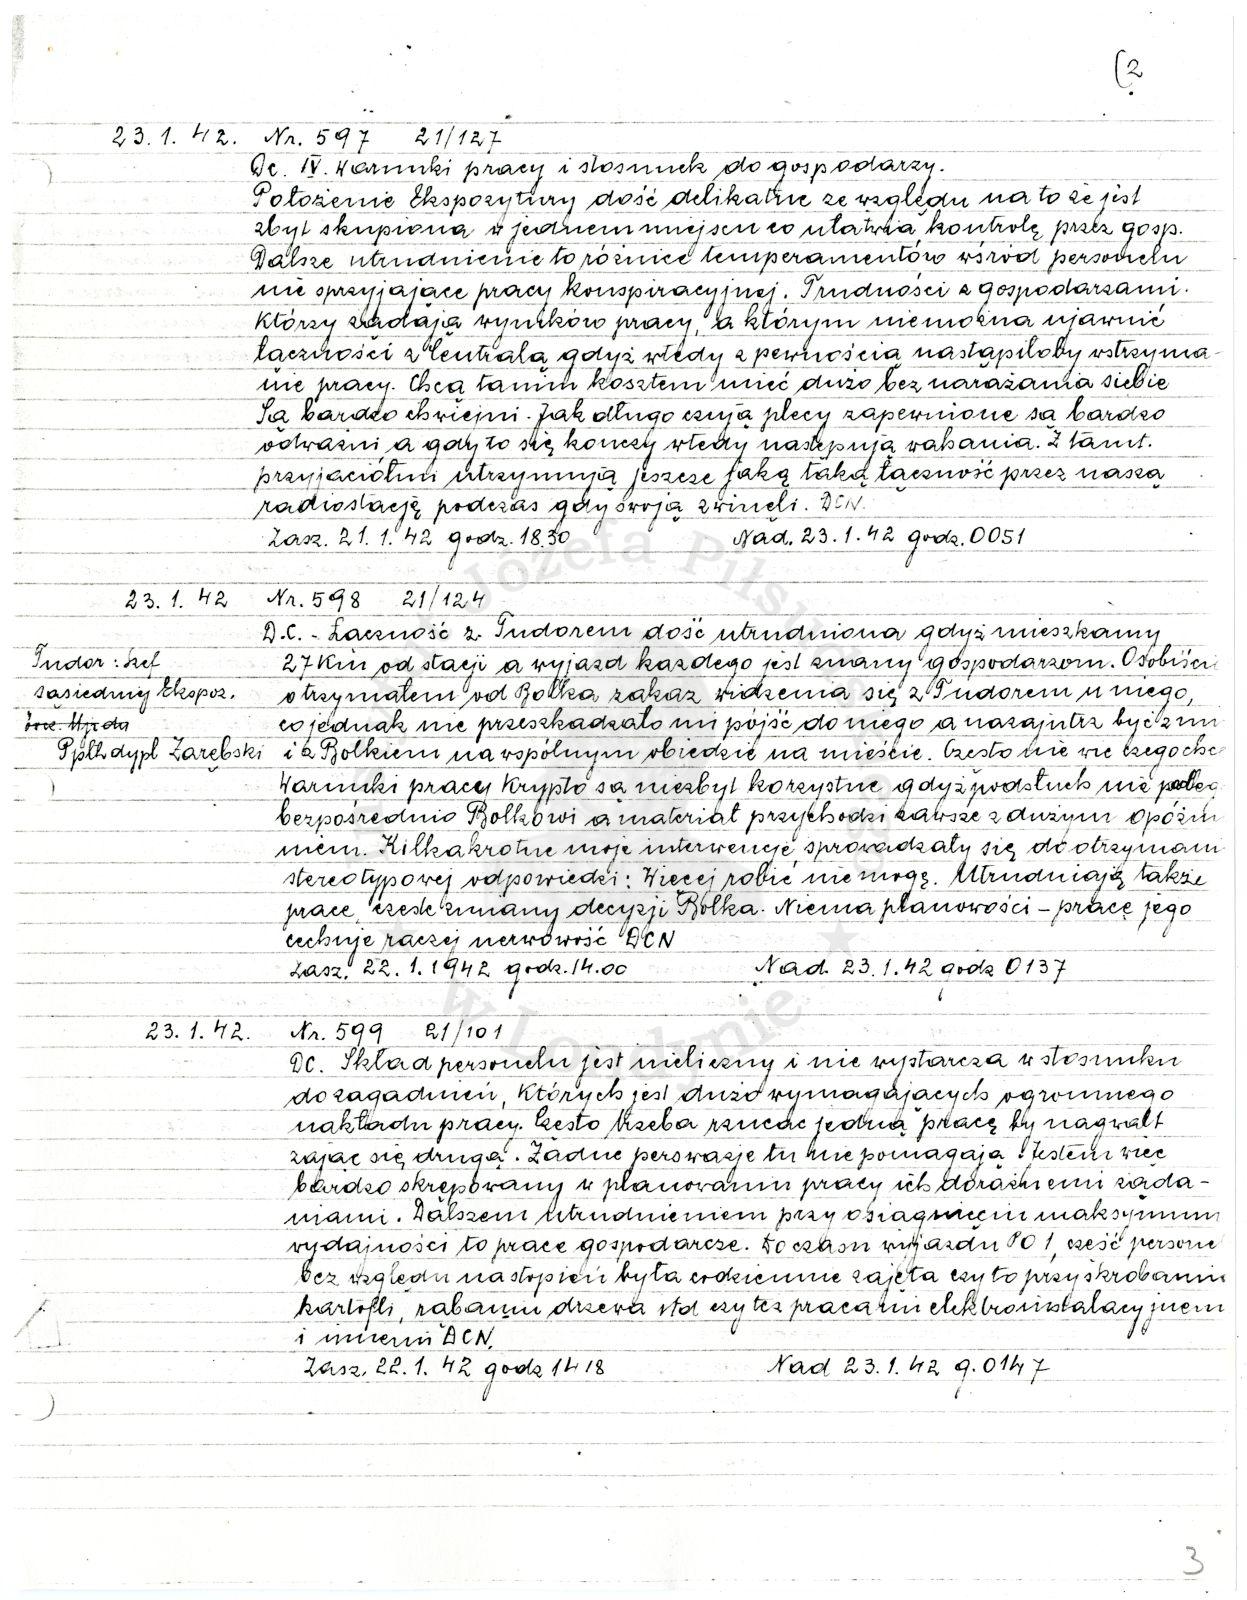 (2
23.1.42. Nr. 597 21/127
Dc. IV. Warunki pracy i stosunek do gospodarzy.
Położenie Ekspozytury dość delikatne ze względu na to że jest
zbyt skupiona w jednem miejscu co ułatwia kontrolę przez gosp.
Dalsze utrudnienie to różnice temperamentów wśród personelu
nie sprzyjające pracy konspiracyjnej. Trudności z gospodarzami.
którzy żądają wyników pracy, a którym niemożna ujawnić
łączności z Centralą gdyż wtedy z pewnością nastąpiłoby wstrzyma-
nie pracy. Chcą tanim kosztem mieć dużo bez narażania siebie
Są bardzo chwiejni. Jak długo czują plecy zapewnione są bardzo
odważni a gdy to się kończy wtedy następują wahania. Z tamt.
przyjaciółmi utrzymują jeszcze jaką taką łączność przez naszą
radiostację podczas gdy swoją zwinęli. DCN.
Zasz. 21.1.42 godz. 18.30 Nad. 23.1.42 godz. 0051
23.1.42 Nr. 598 21/124
D.C. - Łączność z Tudorem dość utrudniona gdyż mieszkamy
Tudor: szef 27 Km od stacji a wyjazd każdego jest znany gospodarzom. Osobiści
sąsiedniej Ekspoz. otrzymałem od Bolka zakaz widzenia się z Tudorem u niego,
co jednak nie przeszkadzało mi pójść do niego a nazajutrz być z nim
Ppłk dypl Zarębski i z Bolkiem na wspólnym obiedzie na mieście. Często nie wie czego chce
Warunki pracy Krypto są niezbyt korzystne gdyż podsłuch nie podleg
bezpośrednio Bolkowi a materiał przychodzi zawsze z dużym opóźni
niem. Kilkakrotne moje interwencje sprowadzały się do otrzymani
stereotypowej odpowiedzi: Więcej robić nie mogę. Utrudniają także
prace częste zmiany decyzji Bolka. Niema planowości - pracę jego
cechuje raczej nerwowość DCN
Zasz. 22.1.1942 godz. 14.00 Nad. 23.1.42 godz 0137
23.1.42. Nr. 599 21/101
DC. Skład personelu jest nieliczny i nie wystarcza w stosunku
do zagadnień, których jest dużo wymagających ogromnego
nakładu pracy. Często trzeba rzucać jedną pracę by nagwałt
zająć się drugą. Żadne perswazje tu nie pomagają. Jestem więc
bardzo skrępowany w planowaniu pracy ich doraźnemi żąda-
niami. Dalszem utrudnieniem przy osiągnięciu maksymum
wydajności to prace gospodarcze. Do czasu wyjazdu PO 1, cześć persone
bez względu na stopień była codziennie zajęta czy to przy skrobaniu
kartofli, rąbaniu drzewa itd czy też pracami elektroinstalacyjnem
i innemi DCN.
Zasz. 22.1.42 godz 1418 Nad 23.1.42 g. 0147
3
Józefa Piłsudskiego
w Londynie